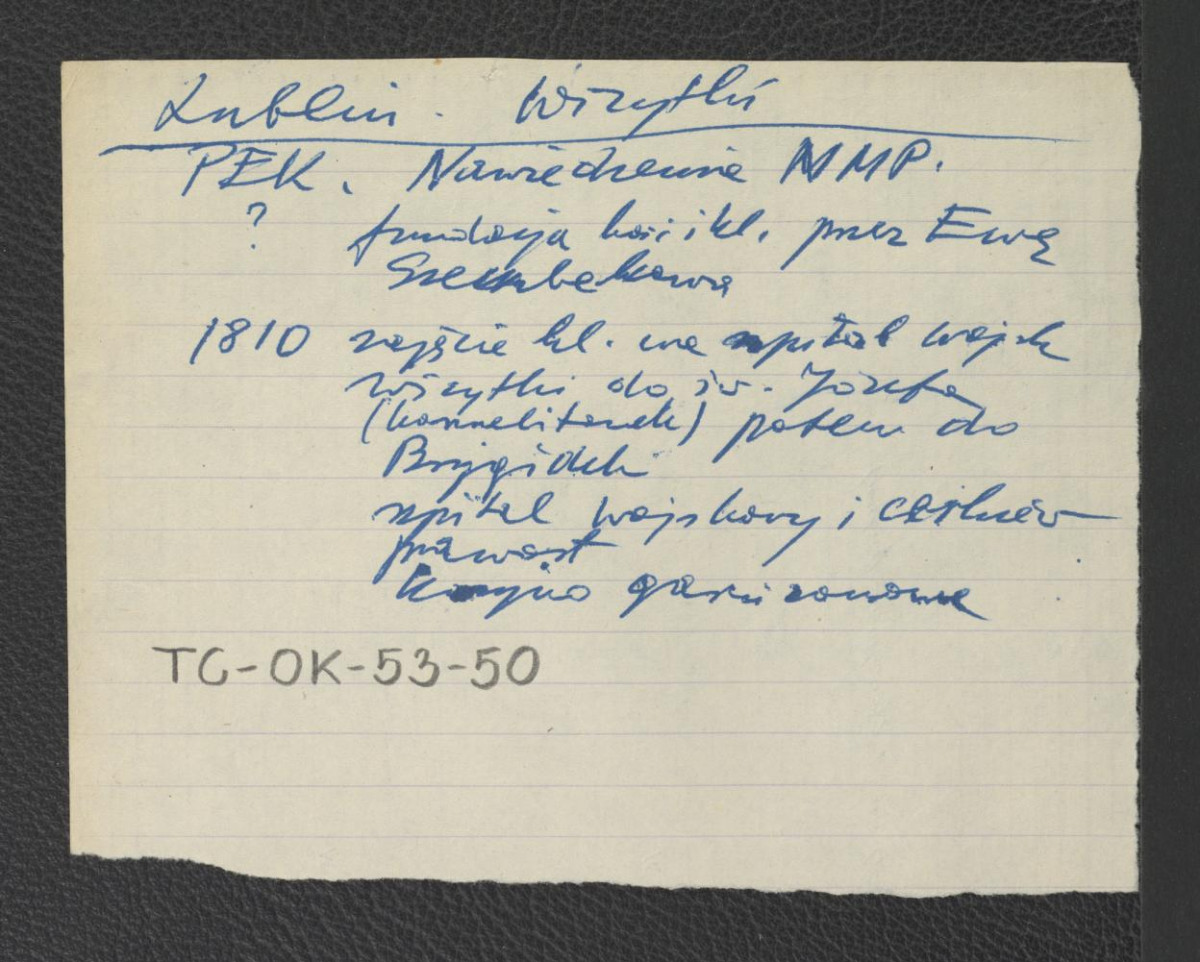 Lublin. Wizytki
PEK. Nawiedzenie NMP.
? fundacja kość i kl. przez Ewę
Szembekową
1810 zajęcie kl. na szpital wojsk
wizytki do św. Józefa
(karmelitanek) potem do
Brygidek
szpital wojskowy i
garnizonowe
TG-OK-53-50